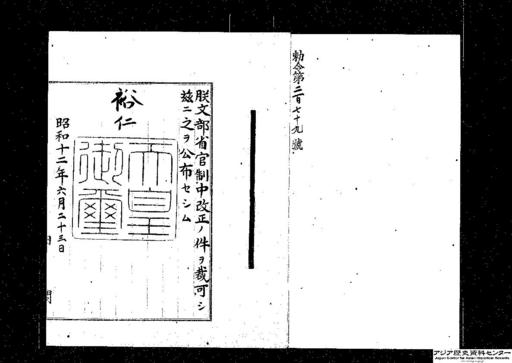 勅令第二百七十九號
朕文部省官制中改正ノ件ヲ裁可シ
茲ニ之ヲ公布セシム
裕仁
天皇御璽
昭和十二年六月二十三日
アジア歴史資料センター
Japan Center for Asian Historical Records